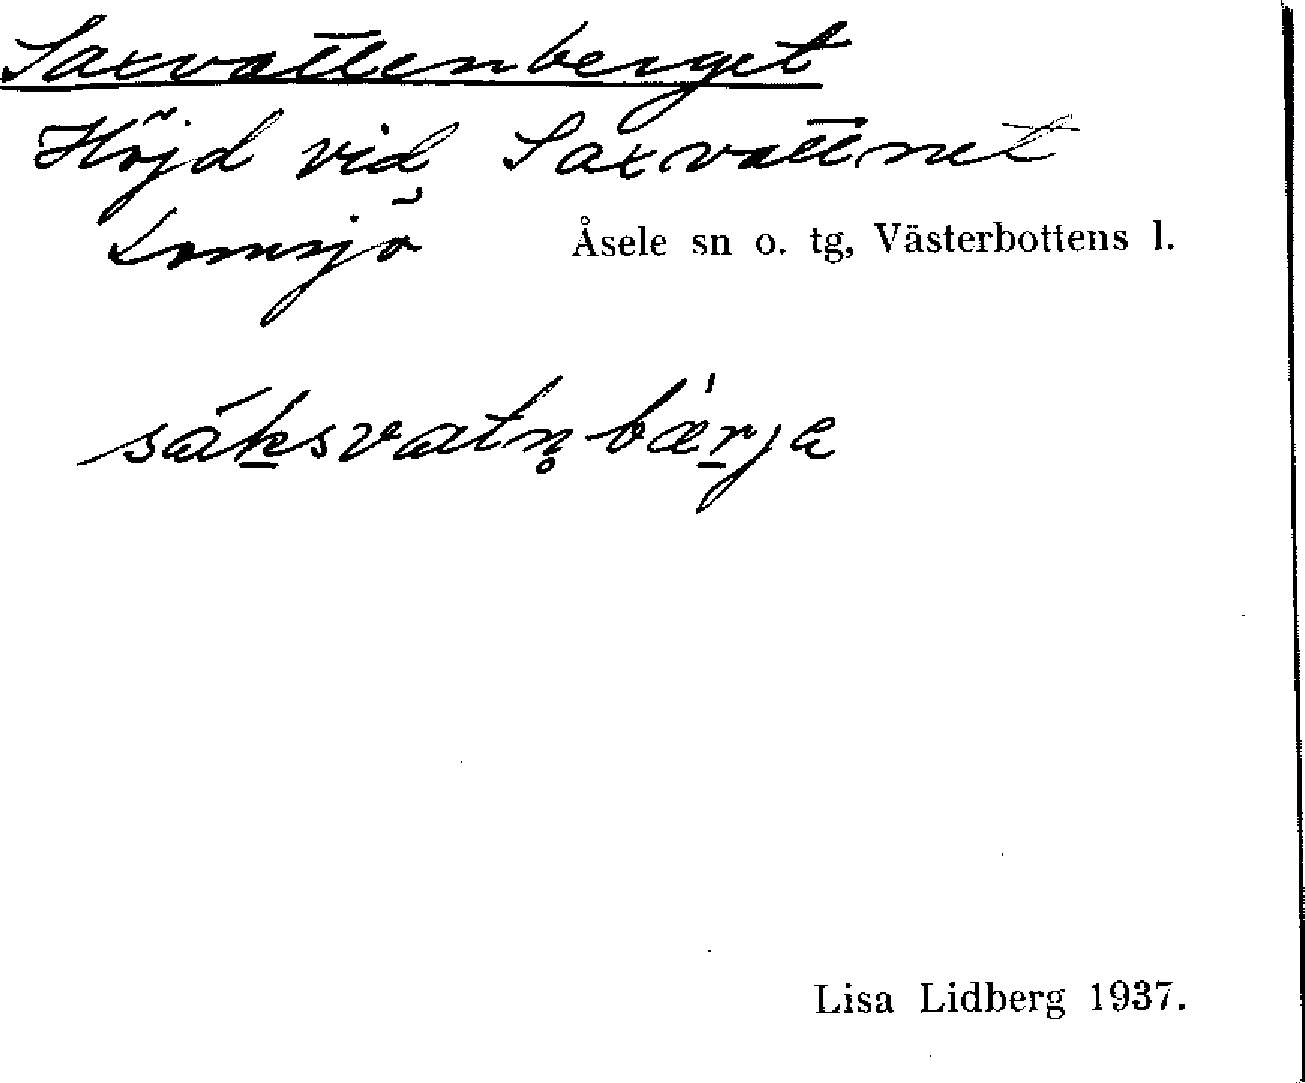 Saxvattenberget
Höjd vid Saxvattnet
Lomsjö Åsele sn o. tg, Västerbottens l.
sák̲svatn̥bær̲ja
Lisa Lidberg 1937.